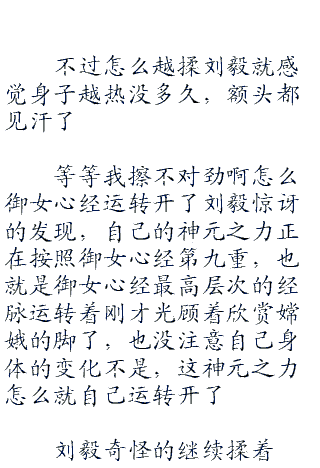 不过怎么越揉刘毅就感
觉身子越热没多久，额头都
见汗了
等等我擦不对劲啊怎么
御女心经运转开了刘毅惊讶
的发现，自己的神元之力正
在按照御女心经第九重，也
就是御女心经最高层次的经
脉运转着刚才光顾着欣赏嫦
娥的脚了，也没注意自己身
体的变化不是，这神元之力
怎么就自己运转开了
刘毅奇怪的继续揉着